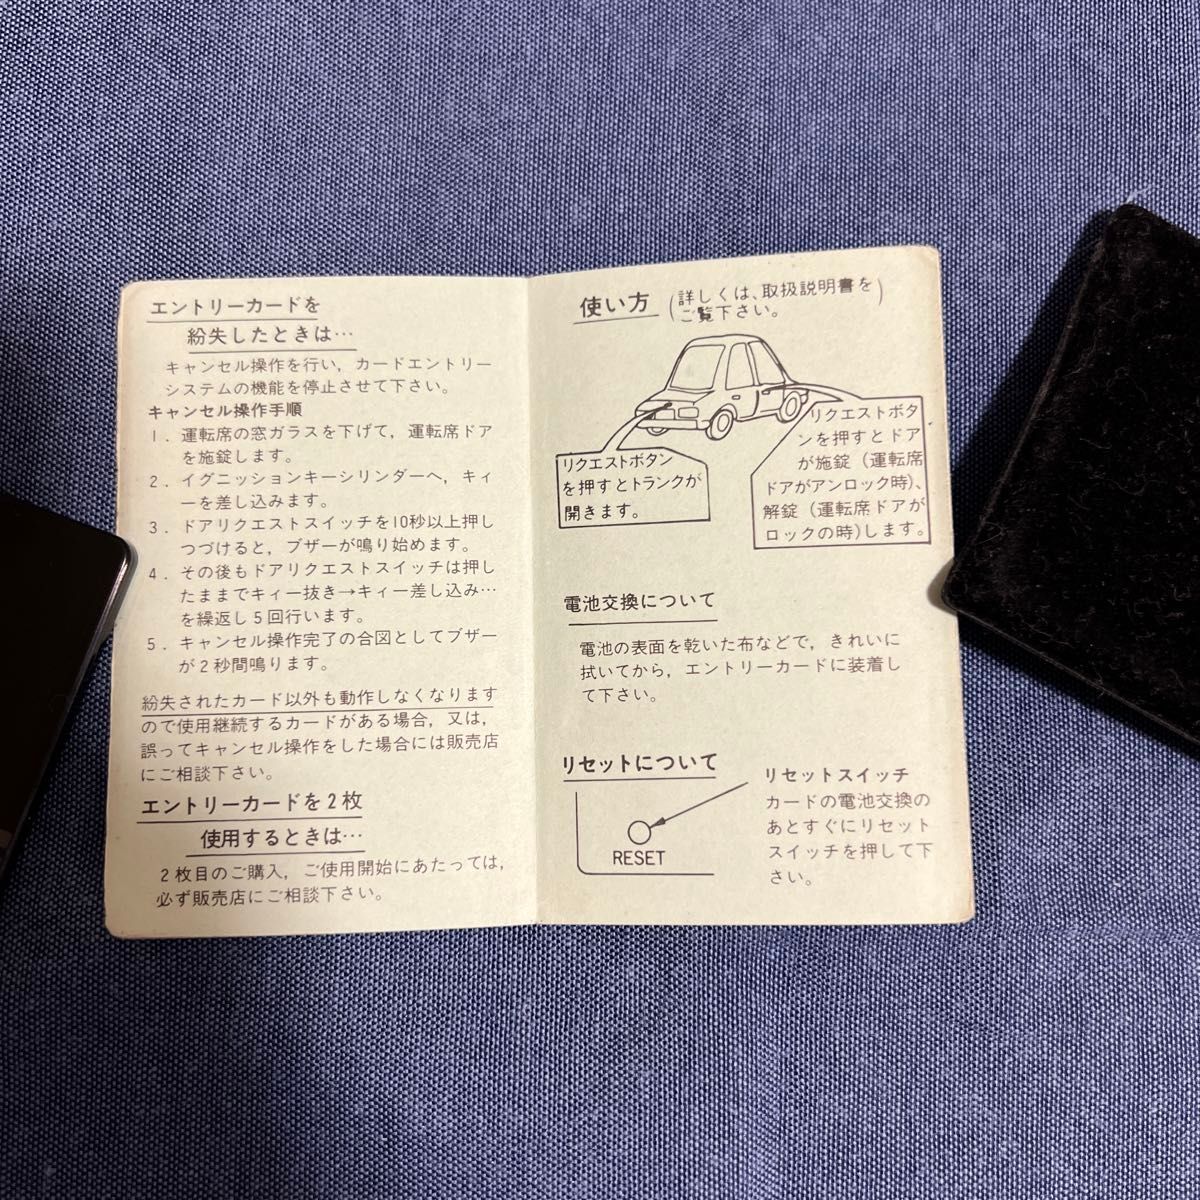 エントリーカードを
紛失したときは…
キャンセル操作を行い，カードエントリー
システムの機能を停止させて下さい。
キャンセル操作手順
1．運転席の窓ガラスを下げて，運転席ドア
を施錠します。
2．イグニッションキーシリンダーへ，キィ
ーを差し込みます。
3．ドアリクエストスイッチを10秒以上押し
つづけると，ブザーが鳴り始めます。
4．その後もドアリクエストスイッチは押し
たままでキィー抜き→キィー差し込み…
を繰返し5回行います。
5．キャンセル操作完了の合図としてブザー
が2秒間鳴ります。
紛失されたカード以外も動作しなくなります
ので使用継続するカードがある場合，又は，
誤ってキャンセル操作をした場合には販売店
にご相談下さい。
エントリーカードを2枚
使用するときは…
2枚目のご購入，ご使用開始にあたっては，
必ず販売店にご相談下さい。
使い方（詳しくは、取扱説明書を
ご覧下さい。）
リクエストボタン
を押すとトランクが
開きます。
リクエストボタ
ンを押すとドア
が施錠（運転席
ドアがアンロック時）、
解錠（運転席ドアが
ロックの時）します。
電池交換について
電池の表面を乾いた布などで，きれいに
拭いてから，エントリーカードに装着し
て下さい。
リセットについて
リセットスイッチ
カードの電池交換の
あとすぐにリセット
スイッチを押して下
さい。
RESET